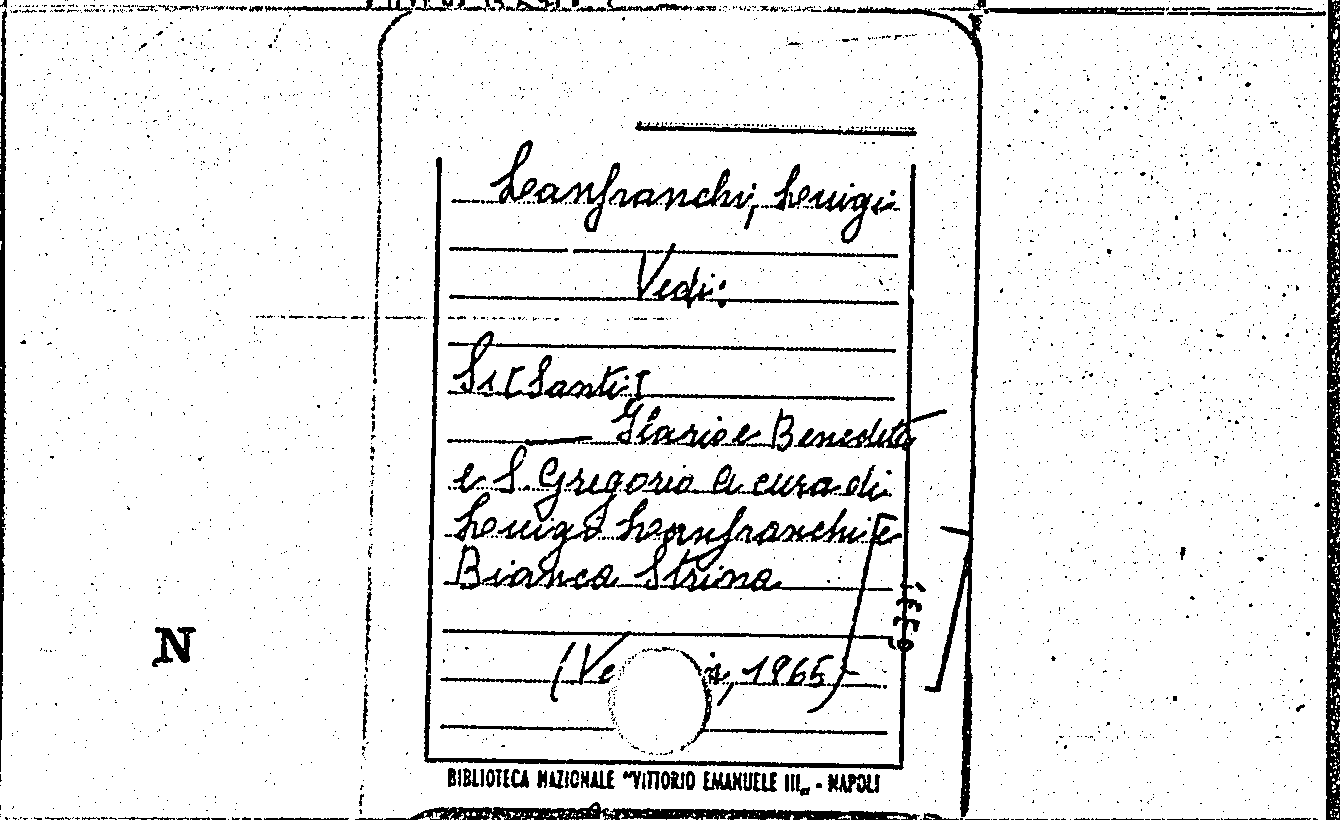 Lanfranchi, Luigi
Vedi:
SS [Santi]
Ilario e Benedetto
e S. Gregorio a cura di
Luigi Lanfranchi e
Bianca Strina
(Ve is, 1965)
N
BIBLIOTECA NAZIONALE "VITTORIO EMANUELE III„ - NAPOLI